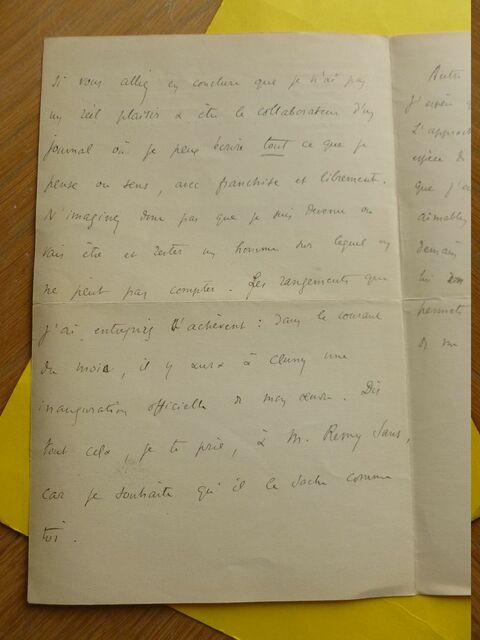 si vous alliez en conclure que je n'ai pas
un réel plaisir à être le collaborateur d'un
journal où je peux écrire tout ce que je
pense ou sens, avec franchise et librement.
N'imaginez donc pas que je suis devenu ou
vais être et rester un homme sur lequel on
ne peut pas compter. Les rangements que
j'ai entrepris s'achèvent : dans le courant
du mois, il y aura à Cluny une
inauguration officielle de mon œuvre. Dis
tout cela, je te prie, à M. Remy Sans,
car je souhaite qu'il le sache comme
toi.
Autre
J'espère
L'approch
espèce de
que j'ai
aimables
demain
lui
permets
de me